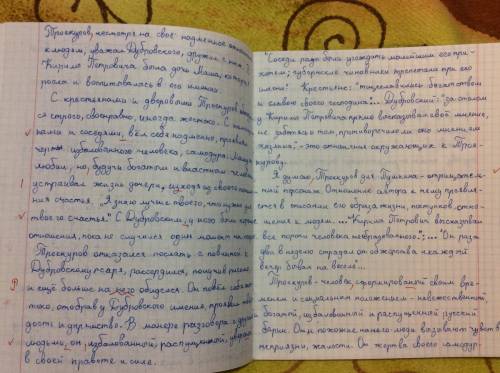 Троекуров, несмотря на своё надменное
к людям, уважал Дубровского, дружил с ним. У
Кирила Петровича была дочь Маша, которая
росла и воспитывалась в его имении.
С крестьянами и дворовыми Троекуров
ся строго, своенравно, иногда жестоко. С
ками и соседями, вёл себя надменно, проявляя
черты избалованного человека, самодура. Машу
любил, но будучи богатым и властным человеком
устраивал жизнь дочери, исходя из своего
ния счастья. "Я знаю лучше твоего, что нужно для
твоего счастья". С Дубровским, у него были хорошие
отношения, пока не случился один момент на
Троекуров отказался послать с повинной к
Дубровскому псаря, рассердился, получив письмо
и ещё больше на него обиделся. Он повёл себя
токо, отобрав у Дубровского имение, проявив
дость и упрямство. В манере разговора с другими
людьми, он, избалованный, распущенный, уверенный
в своей правоте и силе.
"Соседи рады были угождать малейшим его при-
хотям; губернские чиновники трепетали при его
имени". Крестьяне: "тщеславились богатством
и славою своего господина... Дубровский: "за столом
у Кирила Петровича громко высказывал своё мнение,
не заботясь о том, противоречило ли оно мнениям
хозяина"- это отношение окружающих к Трое-
курову.
Я думаю, Троекуров для Пушкина - отрицатель-
ный персонаж. Отношение автора к нему проявля-
ется в описании его образа жизни, поступков, отно-
шения к людям... "Кирила Петрович выказывал
все пороки человека необразованного";... "Он раза
два в неделю страдал от обжорства и каждый
вечер бывал на веселе...
Троекуров - человек, сформированный своим вре-
менем и социальным положением - невежественный,
богатый, избалованный и распущенный русский
барин. Он и похожие на него люди вызывают чувства
неприязни, жалости. Он жертва своего самодур-